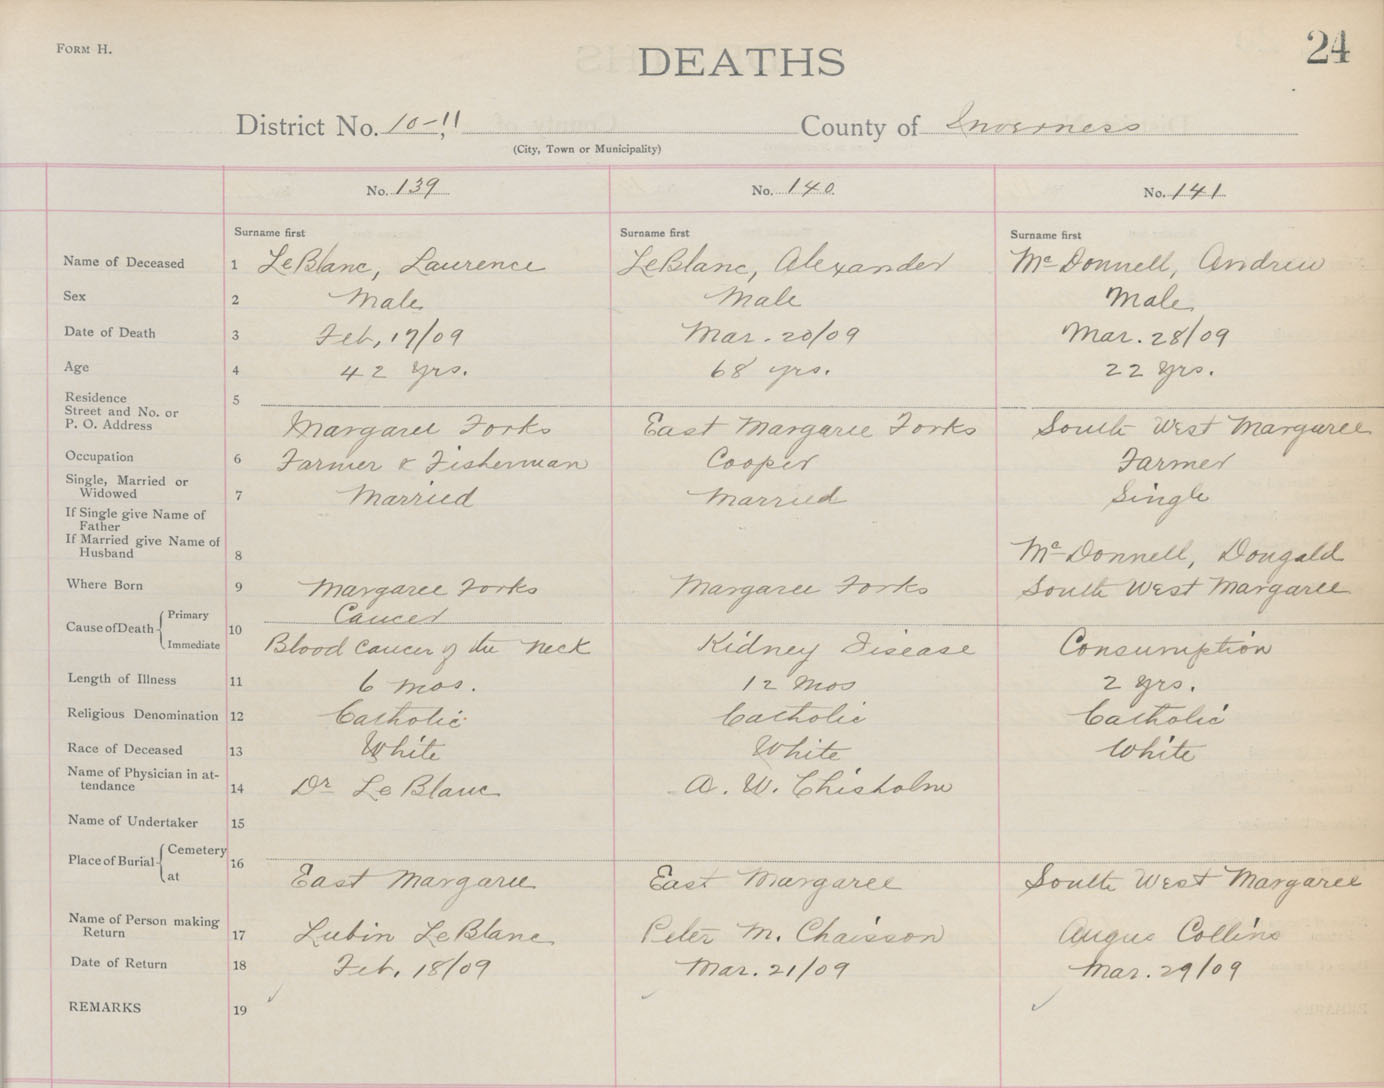 FORM H.
DEATHS
24
District No. 10-11
County of Inverness
(City, Town or Municipality)
No. 139
No. 140
No. 141
Surname first
Surname first
Surname first
Name of Deceased 1 LeBlanc, Laurence LeBlanc, Alexander McDonnell, Andrew
Sex 2 Male Male Male
Date of Death 3 Feb, 17/09 Mar. 20/09 Mar. 28/09
Age 4 42 yrs. 68 yrs. 22 yrs.
Residence 5
Street and No. or
P. O. Address Margaree Forks East Margaree Forks South West Margaree
Occupation 6 Farmer & Fisherman Cooper Farmer
Single, Married or
Widowed 7 Married Married Single
If Single give Name of
Father
If Married give Name of
Husband 8 McDonnell, Dougald
Where Born 9 Margaree Forks Margaree Forks South West Margaree
Cause of Death Primary 10 Cancer
Immediate Blood Cancer of the neck Kidney Disease Consumption
Length of Illness 11 6 mos. 12 mos 2 yrs.
Religious Denomination 12 Catholic Catholic Catholic
Race of Deceased 13 White White White
Name of Physician in at-
tendance 14 Dr LeBlanc A. W. Chisholm
Name of Undertaker 15
Place of Burial Cemetery 16
at East Margaree East Margaree South West Margaree
Name of Person making
Return 17 Lubin LeBlanc Peter M. Chaisson Angus Collins
Date of Return 18 Feb, 18/09 Mar. 21/09 Mar. 29/09
REMARKS 19